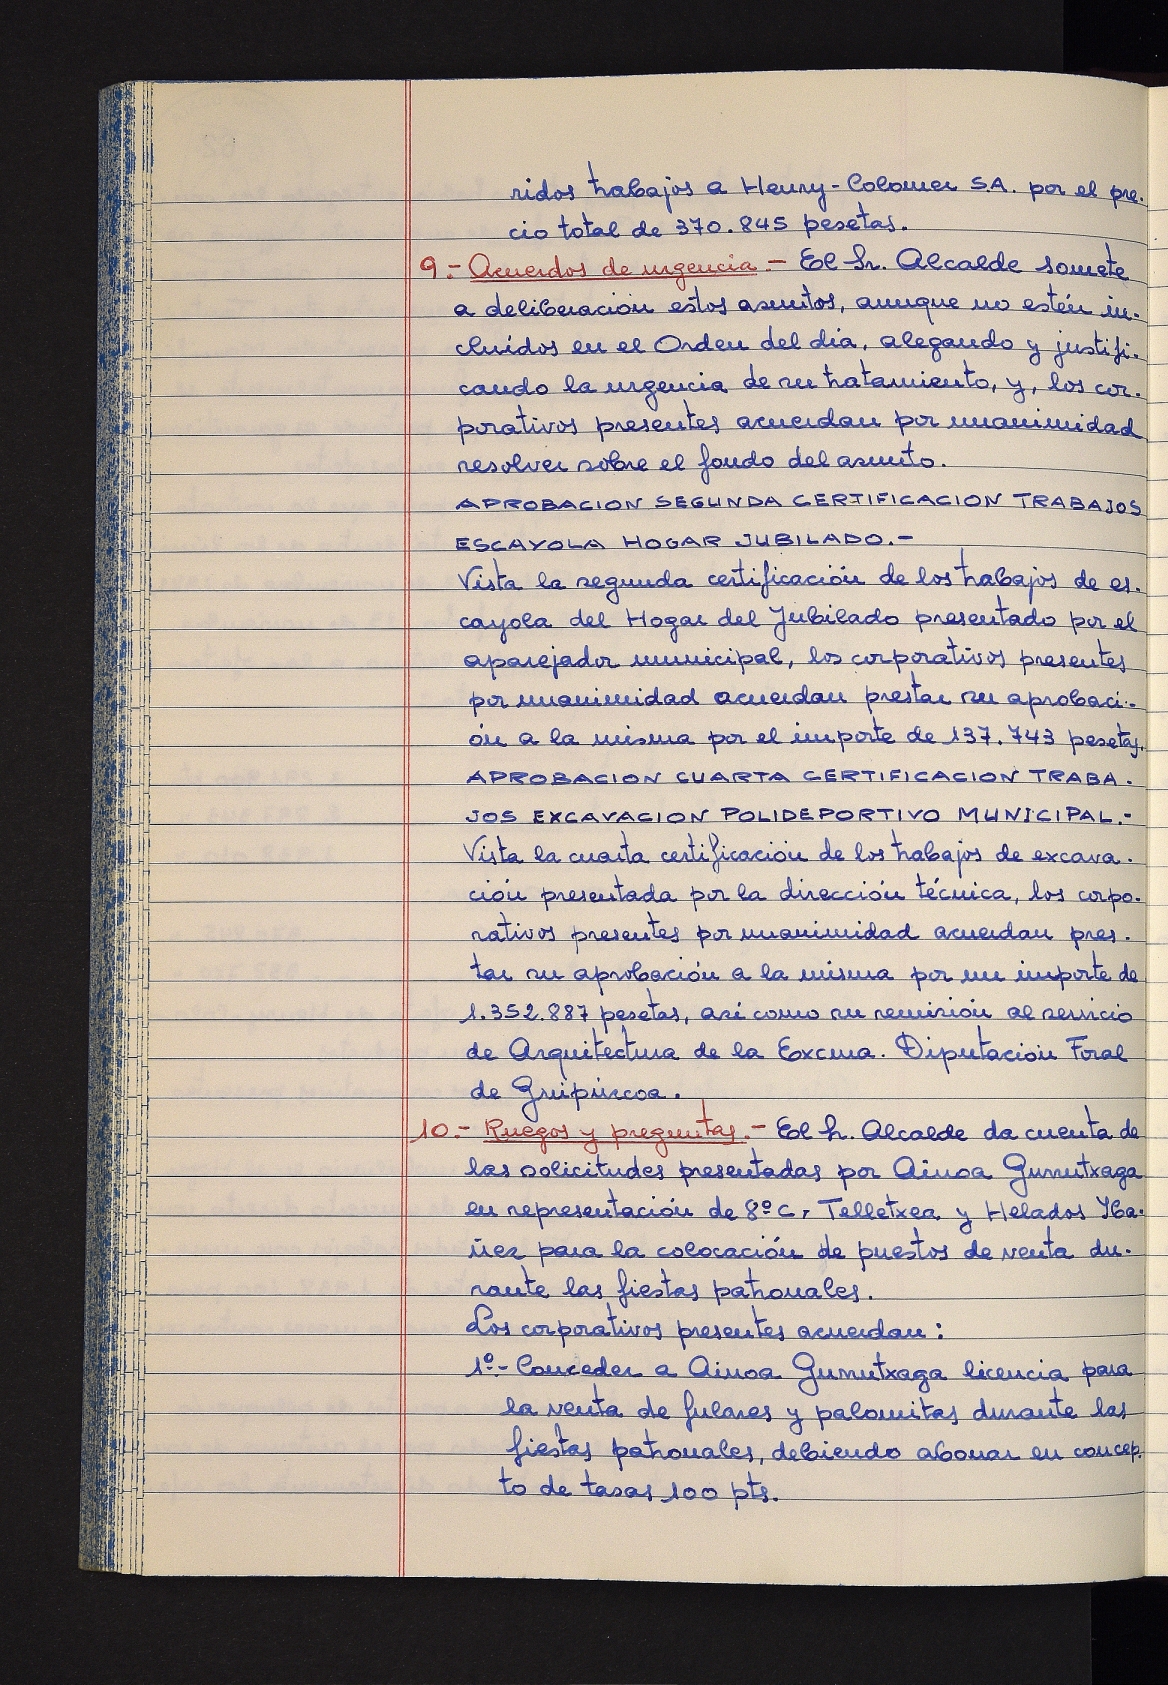 ridos trabajos a Henry-Colomer SA. por el pre-
cio total de 370.845 pesetas.
9.- Acuerdos de urgencia.- El Sr. Alcalde somete
a deliberación estos asuntos, aunque no estén in-
cluídos en el Orden del dia, alegando y justifi-
cando la urgencia de su tratamiento, y, los cor-
porativos presentes acuerdan por unanimidad
resolver sobre el fondo del asunto.
APROBACION SEGUNDA CERTIFICACION TRABAJOS
ESCAYOLA HOGAR JUBILADO.-
Vista la segunda certificación de los trabajos de es-
cayola del Hogar del Jubilado presentado por el
aparejador municipal, los corporativos presentes
por unanimidad acuerdan prestar su aprobaci-
ón a la misma por el importe de 137.743 pesetas.
APROBACION CUARTA CERTIFICACION TRABA-
JOS EXCAVACION POLIDEPORTIVO MUNICIPAL.-
Vista la cuarta certificación de los trabajos de excava-
ción presentada por la dirección técnica, los corpo-
rativos presentes por unanimidad acuerdan pres-
tar su aprobación a la misma por un importe de
1.352.887 pesetas, así como su remisión al servicio
de Arquitectura de la Excma. Diputación Foral
de Guipúzcoa.
10.- Ruegos y preguntas.- El Sr. Alcalde da cuenta de
las solicitudes presentadas por Ainoa Gurrutxaga
en representación de 8º C, Telletxea y Helados Iba-
ñez para la colocación de puestos de venta du-
rante las fiestas patronales.
Los corporativos presentes acuerdan:
1º.- Conceder a Ainoa Gurrutxaga licencia para
la venta de fulares y palomitas durante las
fiestas patronales, debiendo abonar en concep-
to de tasas 100 pts.